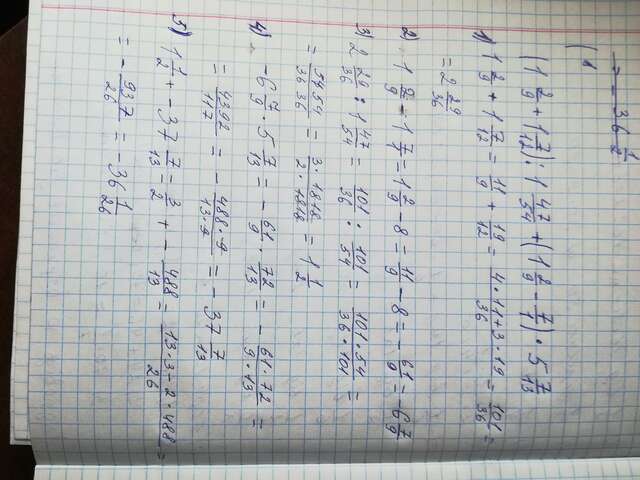 = -36 1/2
(1
(1 2/9 + 1 7/12) : 1 47/54 + (1 2/9 - 7/1) · 5 7/13
1) 1 2/9 + 1 7/12 = 11/9 + 19/12 = 4·11+3·19/36 = 101/36 =
= 2 29/36
2) 1 2/9 - 1 7/9 = 1 2/9 - 8 = 11/9 - 8 = - 61/9 = -6 7/9
3) 2 29/36 : 1 47/54 = 101/36 : 101/54 = 101·54/36·101 =
= 5454/3636 = 3·1818/2·1818 = 1 1/2
4) -6 7/9 · 5 7/13 = - 61/9 · 72/13 = - 61·72/9·13 =
= 4392/117 = - 488·9/13·9 = -37 7/13
5) 1 1/2 + -37 7/13 = 3/2 + - 488/13 = 13·3-2·488/26 =
= - 937/26 = -36 1/26